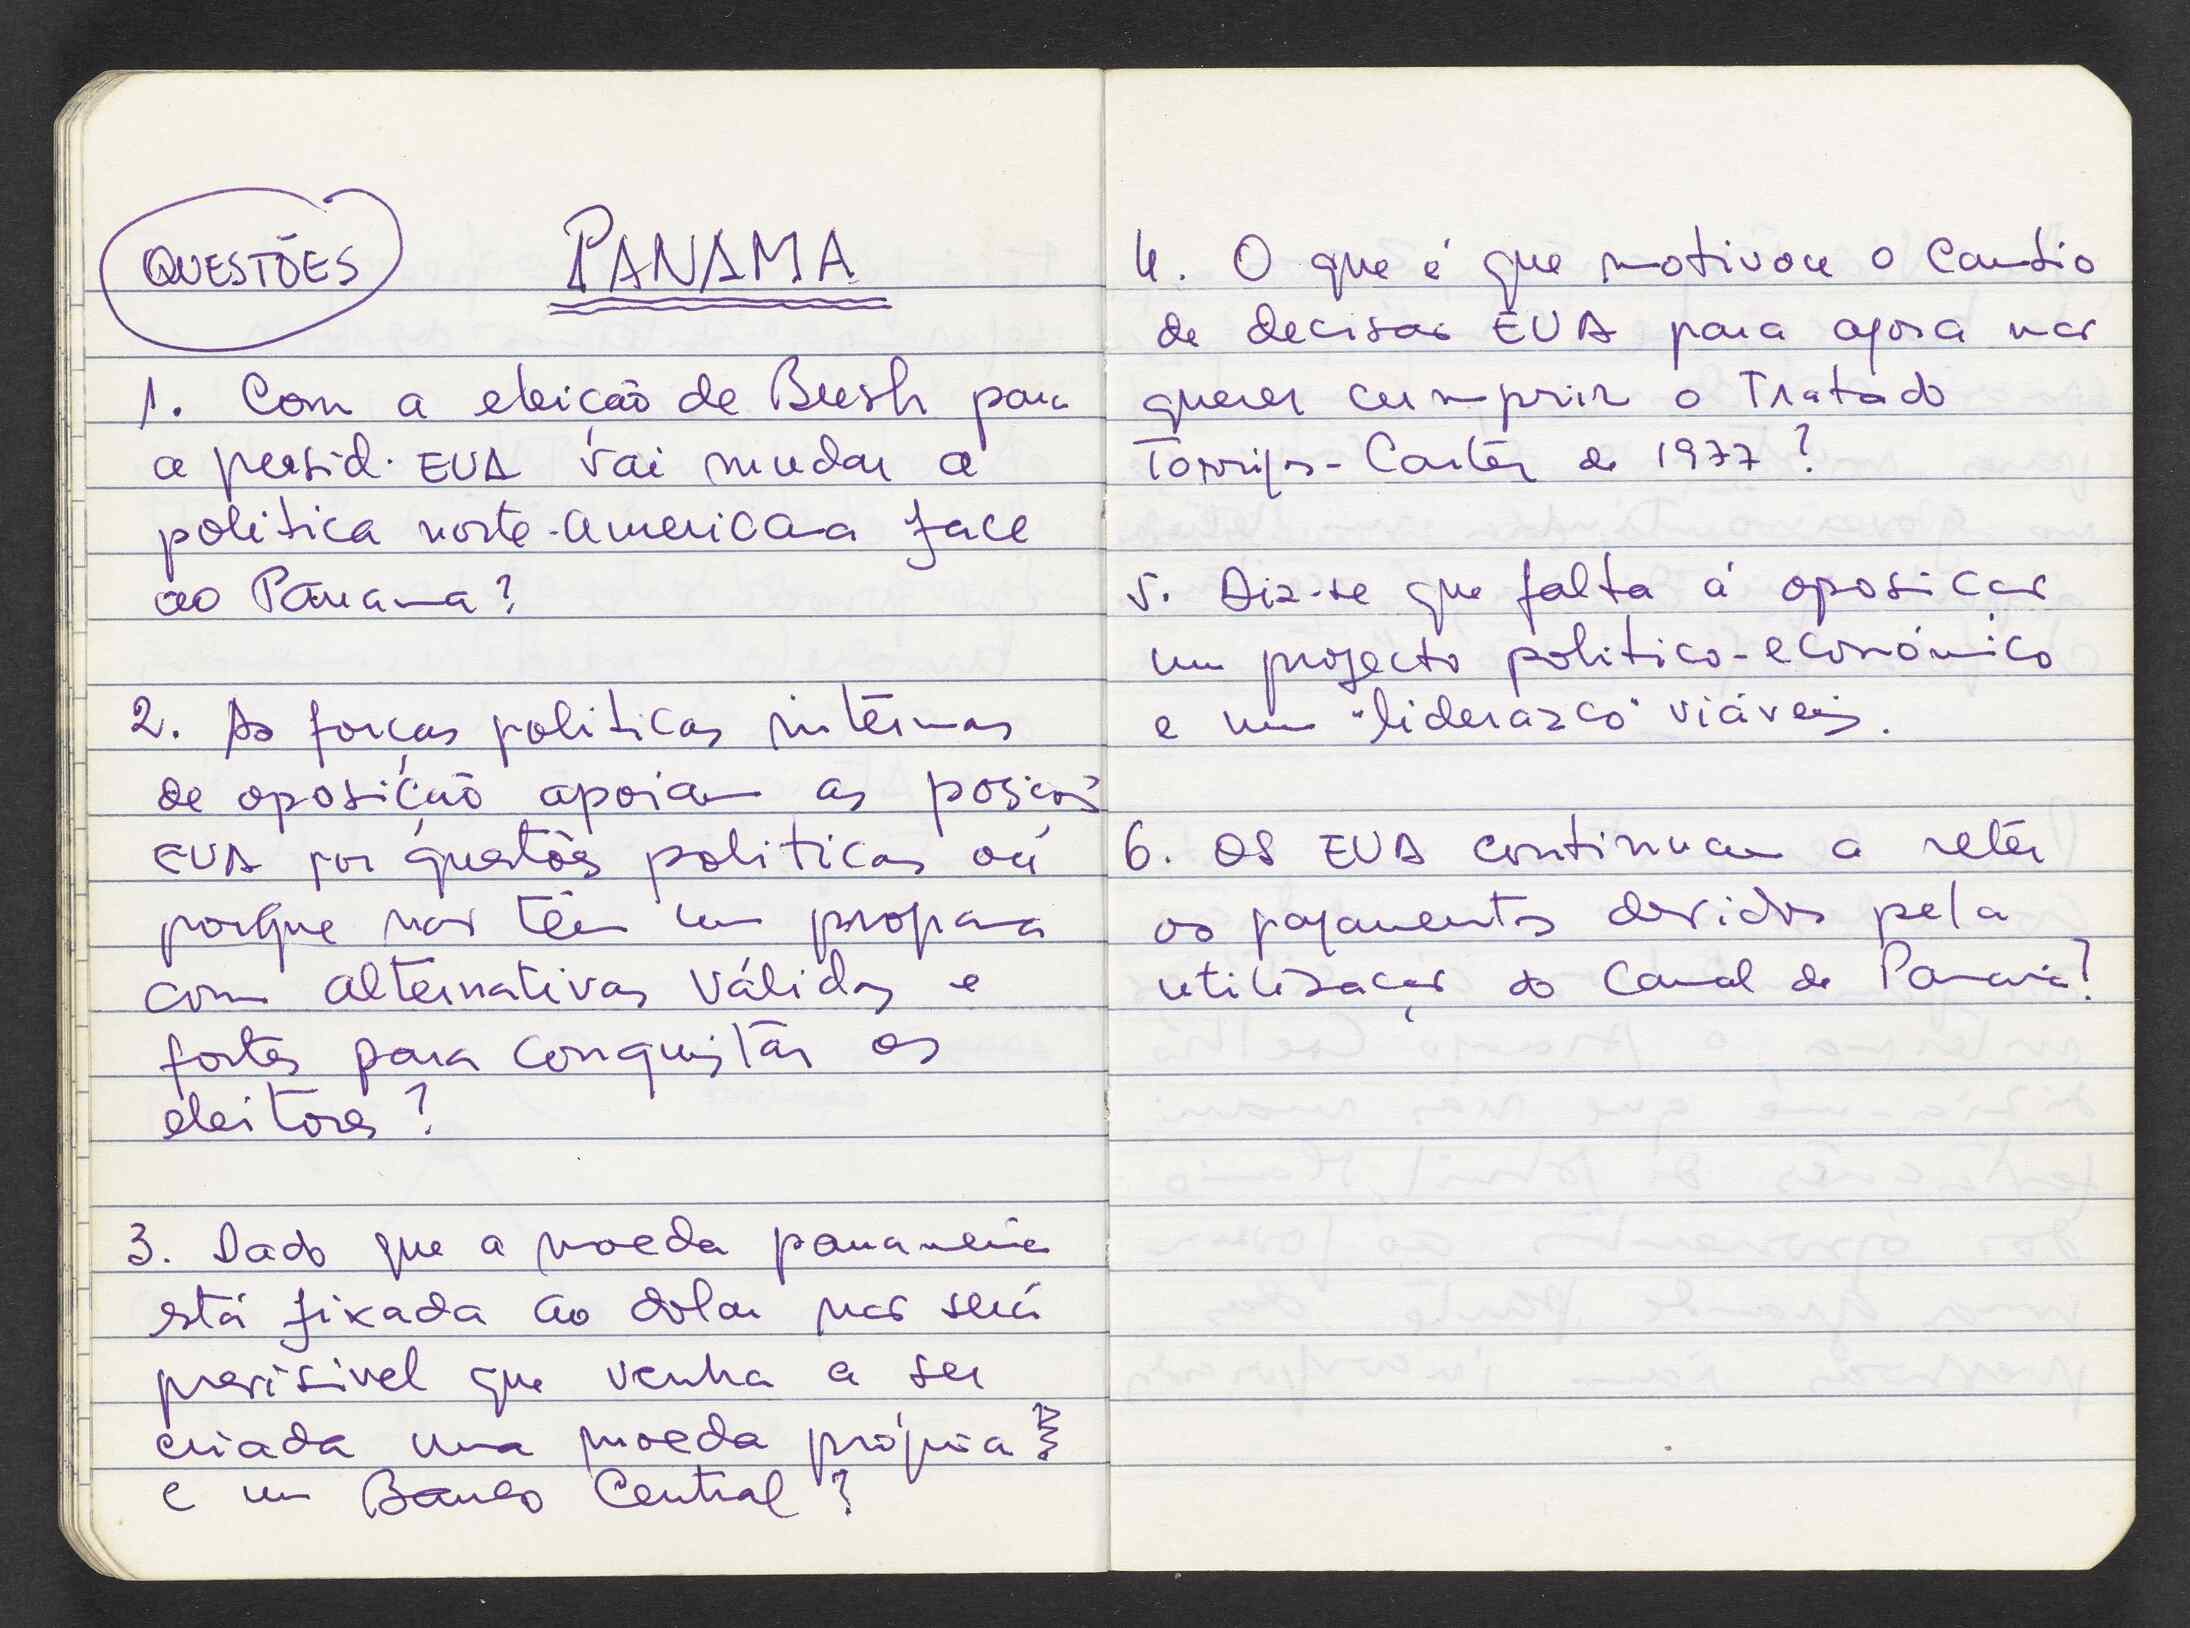 QUESTÕES
PANAMA
1. Com a eleição de Bush para
a presid. EUA vai mudar a
politica norte-americana face
ao Panama?
2. As forças politicas internas
de oposição apoiam as posições
EUA por questões politicas ou
porque não têm um programa
com alternativas válidas e
fortes para conquistar os
eleitores?
3. Dado que a moeda panameña
está fixada ao dolar não será
previsivel que venha a ser
criada uma moeda própria
e um Banco Central?
4. O que é que motivou o cambio
de decisão EUA para agora não
querer cumprir o Tratado
Torrijos-Carter de 1977?
5. Diz-se que falta á oposição
um projecto politico-económico
e um "liderazco" viáveis.
6. OS EUA continuam a reter
os pagamentos devidos pela
utilização do Canal de Panamá?